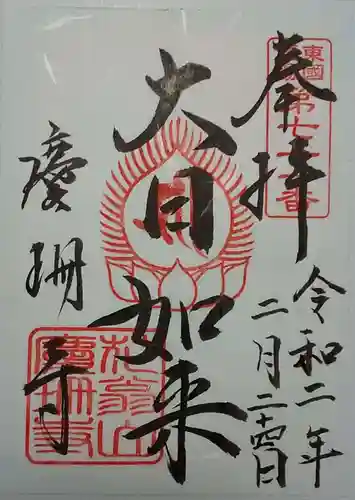 奉拝
東國
第七十番
令和二年
二月二十四日
大日如来
慶珊寺
花翁山
慶珊寺